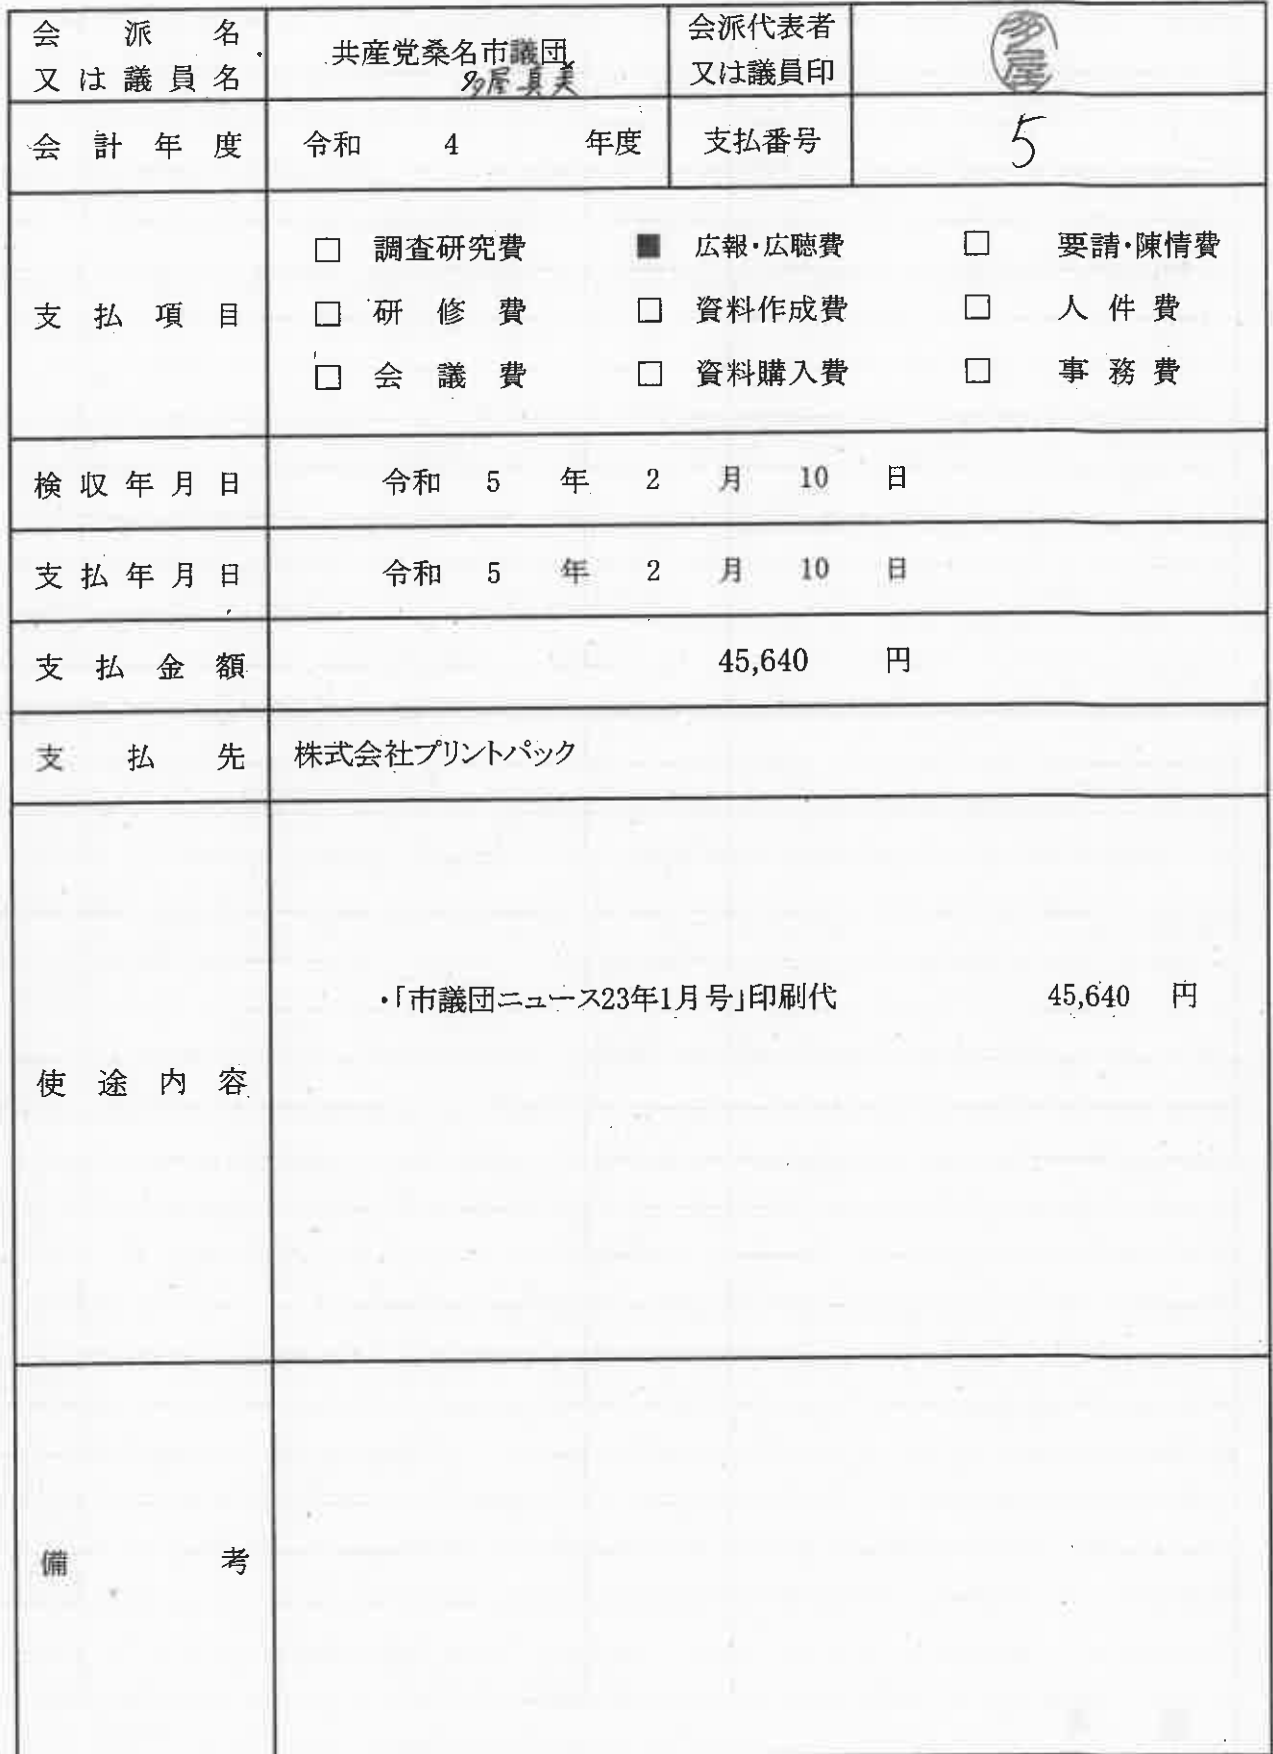 会派名
又は議員名
共産党桑名市議団
多屋真美
会派代表者
又は議員印
多屋
会計年度
令和 4 年度
支払番号
5
支払項目
□ 調査研究費 ■ 広報・広聴費 □ 要請・陳情費
□ 研修費 □ 資料作成費 □ 人件費
□ 会議費 □ 資料購入費 □ 事務費
検収年月日
令和 5 年 2 月 10 日
支払年月日
令和 5 年 2 月 10 日
支払金額
45,640 円
支払先
株式会社プリントパック
使途内容
・「市議団ニュース23年1月号」印刷代 45,640 円
備考